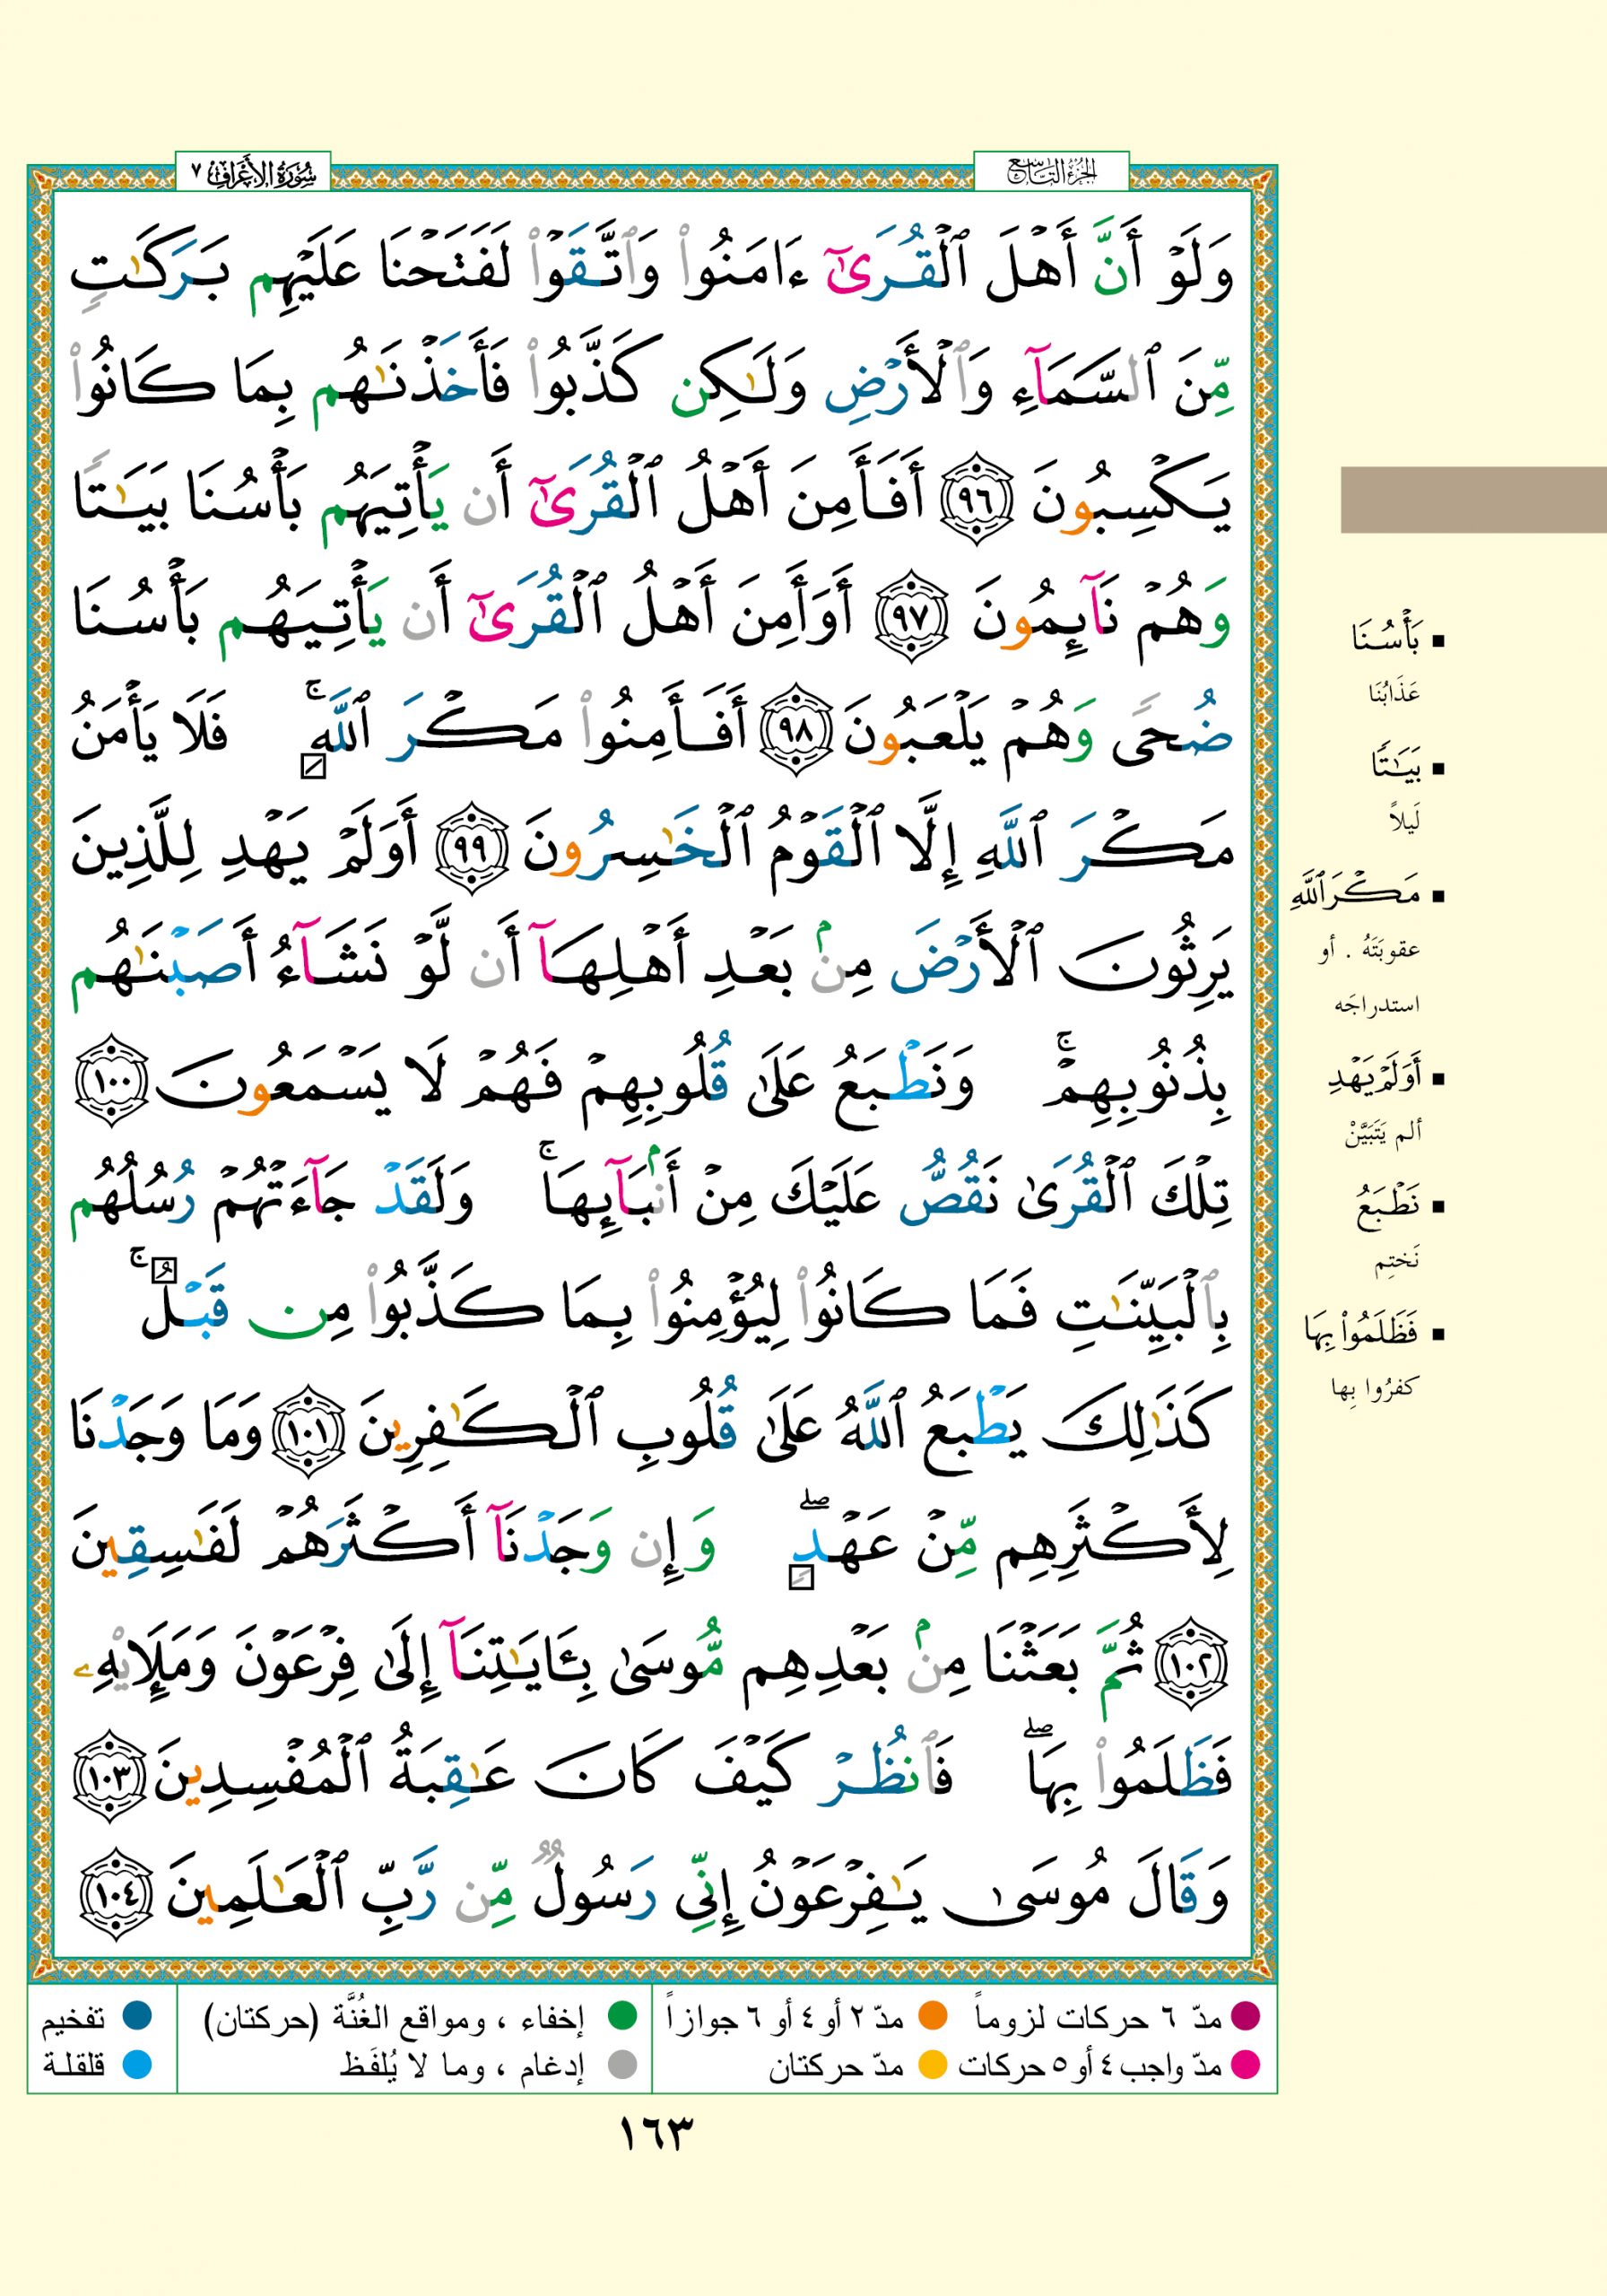 الجزء التاسع
سورة الأعراف ٧
وَلَوْ أَنَّ أَهْلَ ٱلْقُرَىٰٓ ءَامَنُوا۟ وَٱتَّقَوْا۟ لَفَتَحْنَا عَلَيْهِم بَرَكَٰتٍ
مِّنَ ٱلسَّمَآءِ وَٱلْأَرْضِ وَلَٰكِن كَذَّبُوا۟ فَأَخَذْنَٰهُم بِمَا كَانُوا۟
يَكْسِبُونَ ٩٦ أَفَأَمِنَ أَهْلُ ٱلْقُرَىٰٓ أَن يَأْتِيَهُم بَأْسُنَا بَيَٰتًا
وَهُمْ نَآئِمُونَ ٩٧ أَوَأَمِنَ أَهْلُ ٱلْقُرَىٰٓ أَن يَأْتِيَهُم بَأْسُنَا
ضُحًى وَهُمْ يَلْعَبُونَ ٩٨ أَفَأَمِنُوا۟ مَكْرَ ٱللَّهِ ۚ فَلَا يَأْمَنُ
مَكْرَ ٱللَّهِ إِلَّا ٱلْقَوْمُ ٱلْخَٰسِرُونَ ٩٩ أَوَلَمْ يَهْدِ لِلَّذِينَ
يَرِثُونَ ٱلْأَرْضَ مِنۢ بَعْدِ أَهْلِهَآ أَن لَّوْ نَشَآءُ أَصَبْنَٰهُم
بِذُنُوبِهِمْ ۚ وَنَطْبَعُ عَلَىٰ قُلُوبِهِمْ فَهُمْ لَا يَسْمَعُونَ ١٠٠
تِلْكَ ٱلْقُرَىٰ نَقُصُّ عَلَيْكَ مِنْ أَنۢبَآئِهَا ۚ وَلَقَدْ جَآءَتْهُمْ رُسُلُهُم
بِٱلْبَيِّنَٰتِ فَمَا كَانُوا۟ لِيُؤْمِنُوا۟ بِمَا كَذَّبُوا۟ مِن قَبْلُ ۚ
كَذَٰلِكَ يَطْبَعُ ٱللَّهُ عَلَىٰ قُلُوبِ ٱلْكَٰفِرِينَ ١٠١ وَمَا وَجَدْنَا
لِأَكْثَرِهِم مِّنْ عَهْدٍ ۖ وَإِن وَجَدْنَآ أَكْثَرَهُمْ لَفَٰسِقِينَ
١٠٢ ثُمَّ بَعَثْنَا مِنۢ بَعْدِهِم مُّوسَىٰ بِـَٔايَٰتِنَآ إِلَىٰ فِرْعَوْنَ وَمَلَإِي۟هِۦ
فَظَلَمُوا۟ بِهَا ۖ فَٱنظُرْ كَيْفَ كَانَ عَٰقِبَةُ ٱلْمُفْسِدِينَ ١٠٣
وَقَالَ مُوسَىٰ يَٰفِرْعَوْنُ إِنِّى رَسُولٌ مِّن رَّبِّ ٱلْعَٰلَمِينَ ١٠٤
▪ بَأْسُنَا
عَذَابُنَا
▪ بَيَٰتًا
لَيلاً
▪ مَكْرَ ٱللَّهِ
عقوبَتَهُ . أو
استدراجَه
▪ أَوَلَمْ يَهْدِ
ألم يَتَبَيَّنْ
▪ نَطْبَعُ
نَختِم
▪ فَظَلَمُوا۟ بِهَا
كفرُوا بِها
مدّ ٦ حركات لزوماً مدّ ٢ أو ٤ أو ٦ جوازاً
مدّ واجب ٤ أو ٥ حركات مدّ حركتان
إخفاء ، ومواقع الغُنَّة (حركتان)
إدغام ، وما لا يُلفَظ
تفخيم
قلقلة
١٦٣